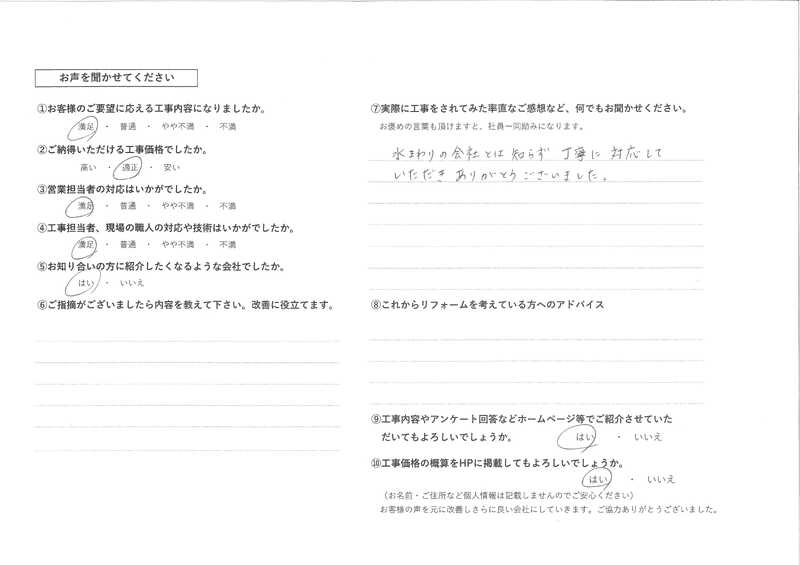 お声を聞かせてください
①お客様のご要望に応える工事内容になりましたか。
満足 ・ 普通 ・ やや不満 ・ 不満
②ご納得いただける工事価格でしたか。
高い ・ 適正 ・ 安い
③営業担当者の対応はいかがでしたか。
満足 ・ 普通 ・ やや不満 ・ 不満
④工事担当者、現場の職人の対応や技術はいかがでしたか。
満足 ・ 普通 ・ やや不満 ・ 不満
⑤お知り合いの方に紹介したくなるような会社でしたか。
はい ・ いいえ
⑥ご指摘がございましたら内容を教えて下さい。改善に役立てます。
⑦実際に工事をされてみた率直なご感想など、何でもお聞かせください。
お褒めの言葉も頂けますと、社員一同励みになります。
水まわりの会社とは知らず 丁寧に対応して
いただき ありがとうございました。
⑧これからリフォームを考えている方へのアドバイス
⑨工事内容やアンケート回答などホームページ等でご紹介させていた
だいてもよろしいでしょうか。 はい ・ いいえ
⑩工事価格の概算をHPに掲載してもよろしいでしょうか。
はい ・ いいえ
（お名前・ご住所など個人情報は記載しませんのでご安心ください）
お客様の声を元に改善しさらに良い会社にしていきます。ご協力ありがとうございました。